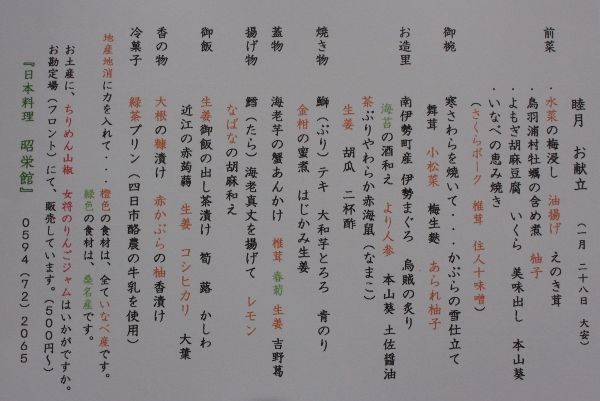 睦月 お献立 (一月 二十八日 大安)
前菜 ・水菜の梅浸し 油揚げ えのき茸
・鳥羽浦村牡蠣の含め煮 柚子
・よもぎ胡麻豆腐 いくら 美味出し 本山葵
・いなべの恵み焼き
(さくらポーク 椎茸 住人十味噌)
御椀 寒さわらを焼いて・・・かぶらの雪仕立て
舞茸 小松菜 梅生麩 あられ柚子
お造里 南伊勢町産 伊勢まぐろ 烏賊の炙り
海苔の酒和え より人参 本山葵 土佐醤油
茶ぶりやわらか赤海鼠(なまこ)
生姜 胡瓜 二杯酢
焼き物 鰤(ぶり)テキ 大和芋とろろ 青のり
金柑の蜜煮 はじかみ生姜
蓋物 海老芋の蟹あんかけ 椎茸 春菊 生姜 吉野葛
揚げ物 鱈(たら)海老真丈を揚げて レモン
なばなの胡麻和え
御飯 生姜御飯の出し茶漬け 筍 蕗 かしわ
近江の赤蒟蒻 生姜 コシヒカリ 大葉
香の物 大根の糠漬け 赤かぶらの柚香漬け
冷菓子 緑茶プリン(四日市酪農の牛乳を使用)
地産地消に力を入れて・・・橙色の食材は、全ていなべ産です。
緑色の食材は、桑名産です。
お土産に、ちりめん山椒 女将のりんごジャムはいかがですか。
お勘定場(フロント)にて、販売しています。(500円~)
『日本料理 昭栄館』 0594(72)2065